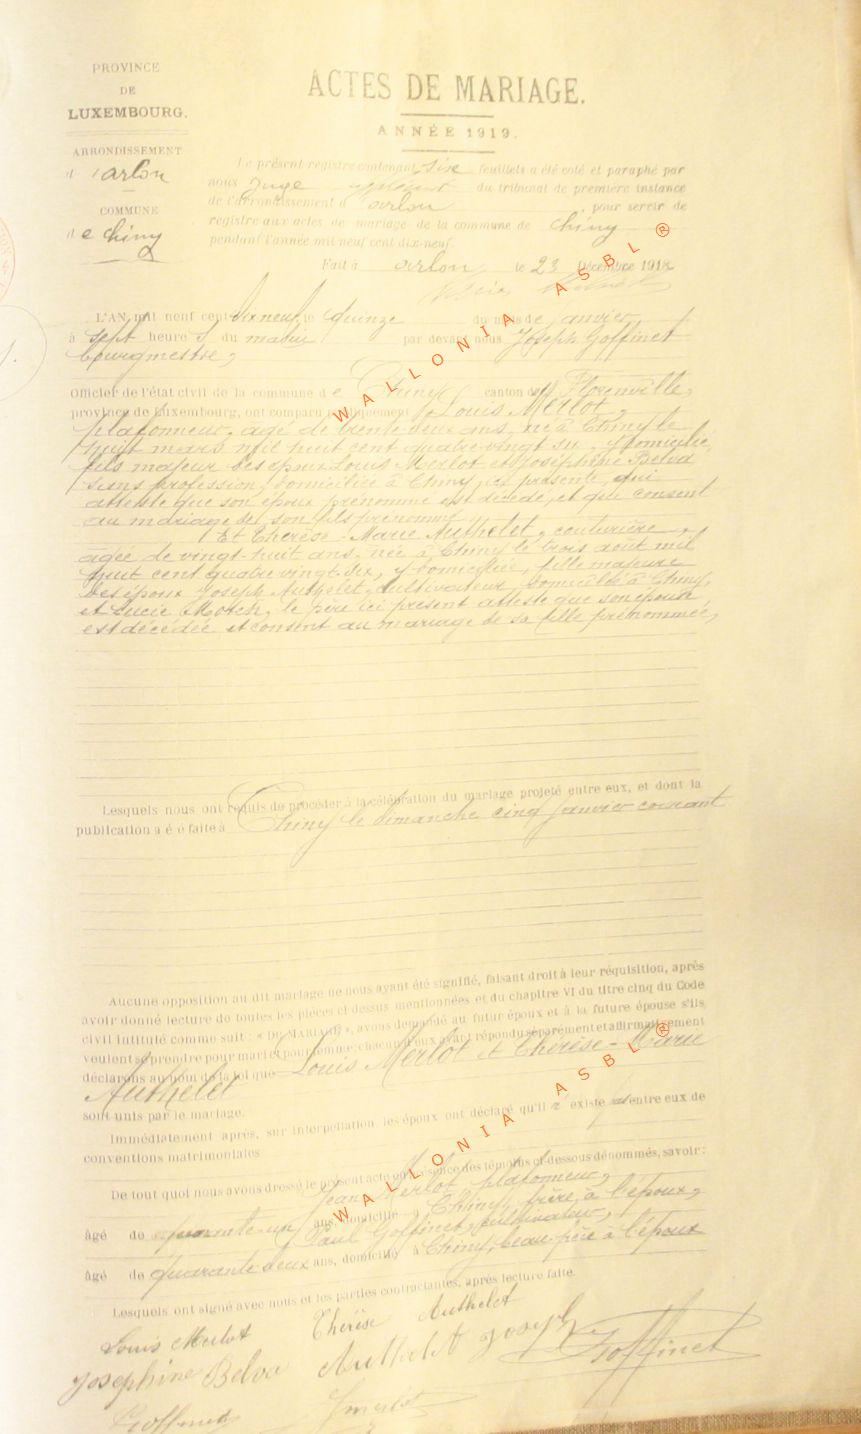 PROVINCE
DE
LUXEMBOURG.
ARRONDISSEMENT
d'arlon
COMMUNE
de Chiny
ACTES DE MARIAGE.
ANNÉE 1919.
Le présent registre contenant six feuillets a été coté et paraphé par
nous Juge du tribunal de première instance
de l'arrondissement d'arlon, pour servir de
registre aux actes de mariage de la commune de Chiny
pendant l'année mil neuf cent dix-neuf.
Fait à arlon le 23 Décembre 1918
L'AN mil neuf cent dix neuf, le quinze du mois de janvier
à sept heures du matin par devant nous Joseph Goffinet
bourgmestre,
Officier de l'état civil de la commune de Chiny canton de Florenville,
province de Luxembourg, ont comparu publiquement Louis Merlot,
plafonneur, agé de trente deux ans, né à Chiny le
huit mars mil huit cent quatre-vingt six, y domicilié,
fils majeur des époux Louis Merlot et Joséphine Belva
sans profession, domiciliée à Chiny, ici présente, qui
atteste que son époux prénommé est décédé, et qui consent
au mariage de son fils prénommé
Et Thérèse-Marie Authelet, couturière,
agée de vingt-huit ans, née à Chiny le trois août mil
huit cent quatre vingt-dix, y domiciliée, fille majeure
des époux Joseph Authelet, cultivateur, domicilié à Chiny,
et Lucie, le père ici présent atteste que son épouse
est décédée et consent au mariage de sa fille prénommée,
Lesquels nous ont requis de procéder à la célébration du mariage projeté entre eux, et dont la
publication a été faite à Chiny le dimanche cinq janvier courant
Aucune opposition au dit mariage ne nous ayant été signifié, faisant droit à leur réquisition, après
avoir donné lecture de toutes les pièces ci dessus mentionnées et du chapitre VI du titre cinq du Code
civil intitulé comme suit : « DU MARIAGE », avons demandé au futur époux et à la future épouse s'ils
veulent se prendre pour mari et pour femme; chacun d'eux ayant répondu séparément et affirmativement
déclarons au nom de la loi que Louis Merlot et Thérèse-Marie
Authelet
sont unis par le mariage.
Immédiatement après, sur interpellation les époux ont déclaré qu'il n'existe pas entre eux de
conventions matrimoniales
De tout quoi nous avons dressé le présent acte en présence des témoins ci-dessous dénommés, savoir:
Jean Merlot plafonneur,
âgé de quarante-un ans, domicilié à Chiny, frère à l'époux,
Paul Goffinet, cultivateur,
âgé de quarante deux ans, domicilié à Chiny, beau-frère à l'époux
Lesquels ont signé avec nous et les parties contractantes, après lecture faite.
Louis Merlot Thérèse Authelet
Josephine Belva Authelet Joseph Goffinet
Goffinet J Merlot
WALLONIA ASBL ®
WALLONIA ASBL ®